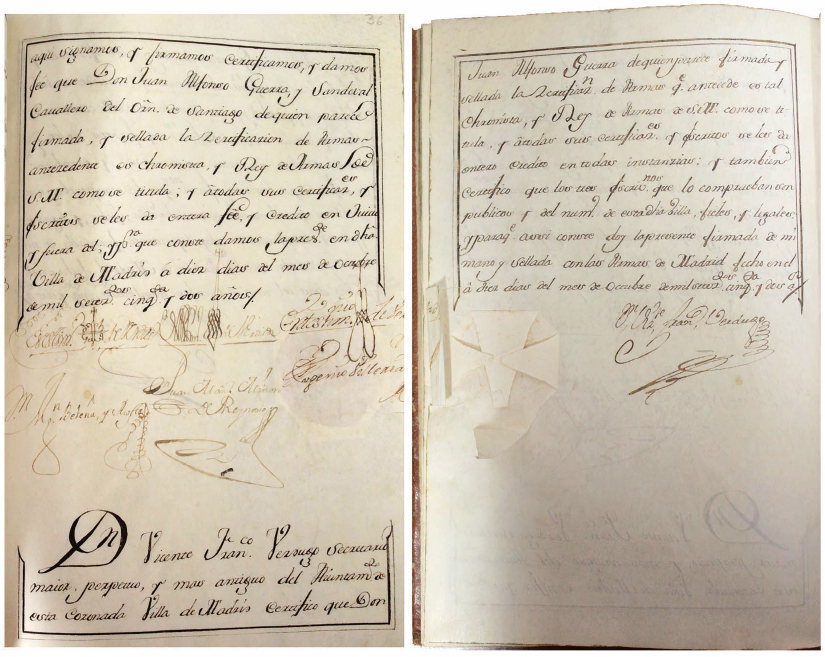 36
aqui signamos, y firmamos Certificamos, y damos
feè que Don Juan Alfonso Guerra, y Sandoval
Cavallero del Orn. de Santiago de quien parece
firmada, y sellada la Zertificazion de Armas
antezedente es Chronista, y Rey de Armas de
S.M. como se titula; y àtodas sus Certificaz.es y
escritos se les da entera feè, y Credito en Juicio
y fuera del; y p.a que conste damos la pres.te en dha
Villa de Madrid à diez dias del mes de Octubre
de mil setez.os cinq.ta y dos años/.
Juan Man.l
De Reynoso
D.n Vicente Fran.co Verdugo Secretario
maior, perpetuo, y mas antiguo del Aiuntam.to de
esta Coronada Villa de Madrid Certifico que Don
Juan Alfonso Guerra de quien parece firmada y
sellada la Zertificaz.n de Armas q.e antecede es tal
Chronista, y Rey de Armas de S.M. como se ti-
tula, y àtodas sus Certificaz.es y escritos se les da
entero Credito en todas instanzias; y tambien
Certifico que los tres Escriv.nos que lo comprueban son
publicos y del num.o de esta dha Villa, fieles, y legales;
y para q.e assi conste doy la presente firmada de mi
mano y sellada con las Armas de Madrid fecho en el
à diez dias del mes de Octubre de mil setez.os cinq.ta y dos a.s/
Vi.te Fran.co Verdugo